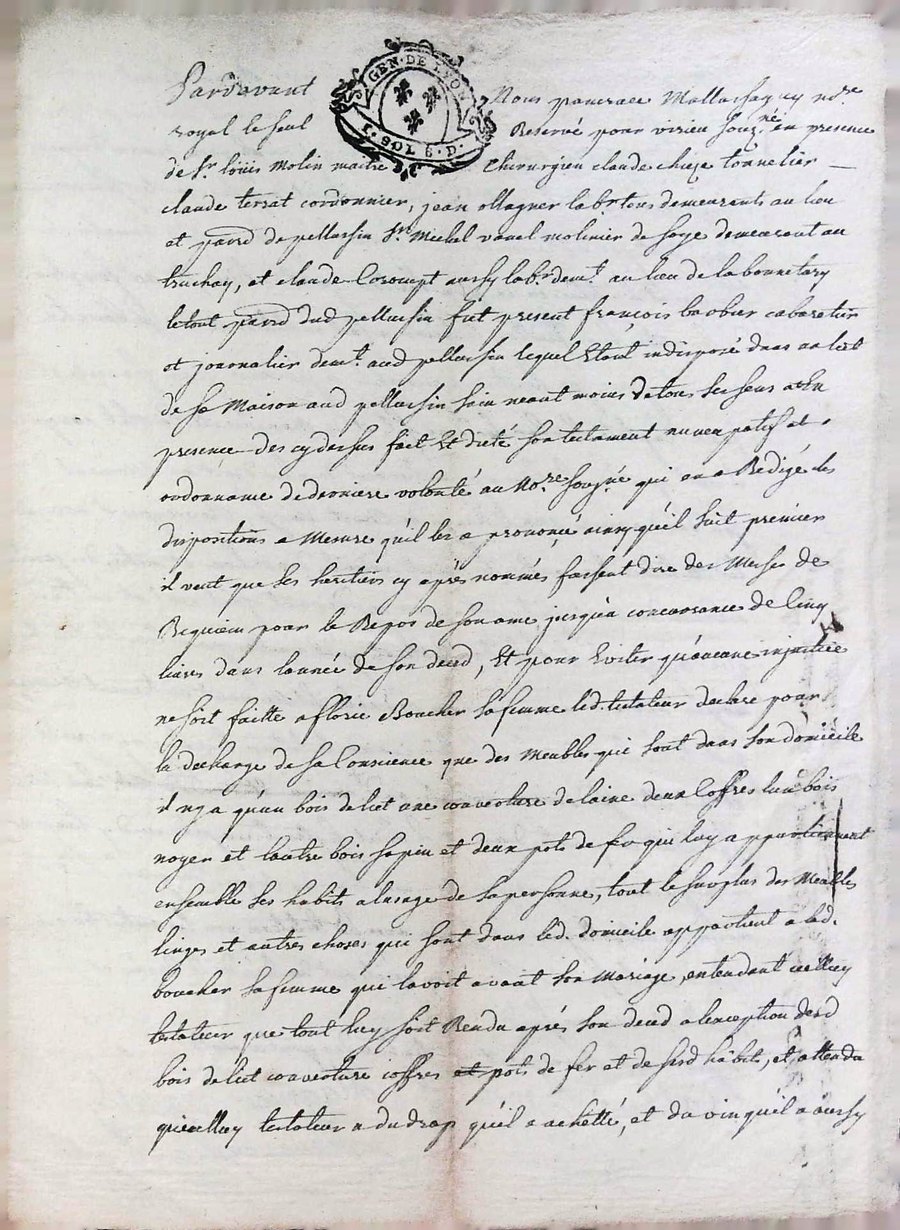 GEN · DE LYON
1 · SOL 6 · D ·
Pardevant Nous pancrace Mallassagny no.re
royal le seul Reservé pour virieu souz.né en presence
de Sr. loüis Molin maitre Chirurgien claude chieze tonnelier
claude terrat cordonnier, jean ollagner lab.r tous demeurants au lieu
et parr.d de pellussin Sr. Michel vanel molinier de soye demeurant au
truchay, et claude Corompt aussy lab.r demt. au lieu de la bonnetary
le tout parr.d dud pellussin fut present françois barbier cabaretier
et journalier demt. aud pellussin lequel Etant indisposé dans un lict
de sa Maison aud pellussin sain neant moins de tous ses sens a En
presence des cy dessus fait Et dicté son testament nuncupatif et
ordonnance de derniere volonté au No.re souz.né qui en a Redigé les
dispositions a Mesure qu'il les a prononcé ainsy qu'il suit premier
il veut que ses heritiers cy aprés nommés fassent dire des Messes de
Requiem pour le Repos de son ame jusqu'a concurrance de Cinq
livres dans lannée de son deced, Et pour Eviter qu'aucune injustice
ne soit faitte a florie Boucher sa femme led. testateur declare pour
la decharge de sa Conscience que des Meubles qui sont dans son domicile
il n'y a qu'un bois de lict une couverture de laine deux Coffres lun bois
noyer et lautre bois sapin et deux pots de fer qui luy appartiennent
ensemble ses habits a lusage de sa personne, tout le surplus des Meubles
linges et autres choses qui sont dans led. domicile appartient a lad.
boucher sa femme qui lavoit avant son mariage, entendant icelluy
testateur que tout luy soit Rendu aprés son deced a lexception desd
bois de lict couverture coffres et pots de fer et de sesd habits, et attendu
quicelluy testateur a du drap qu'il a achetté, et du vin qu'il a aussy